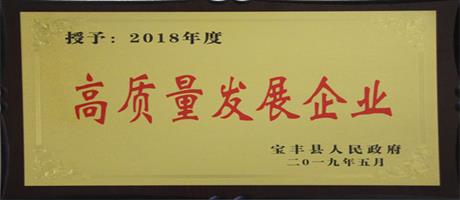 授予：2018年度
高质量发展企业
宝丰县人民政府
二〇一九年五月